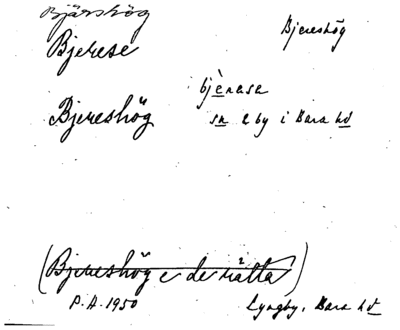 Bjärshög
Bjerese
Bjereshög
bjènasa
Bjereshög
sn & by i Bara hd
(Bjereshög e de rätta)
P.A. 1950
Lyngby, Bara hd